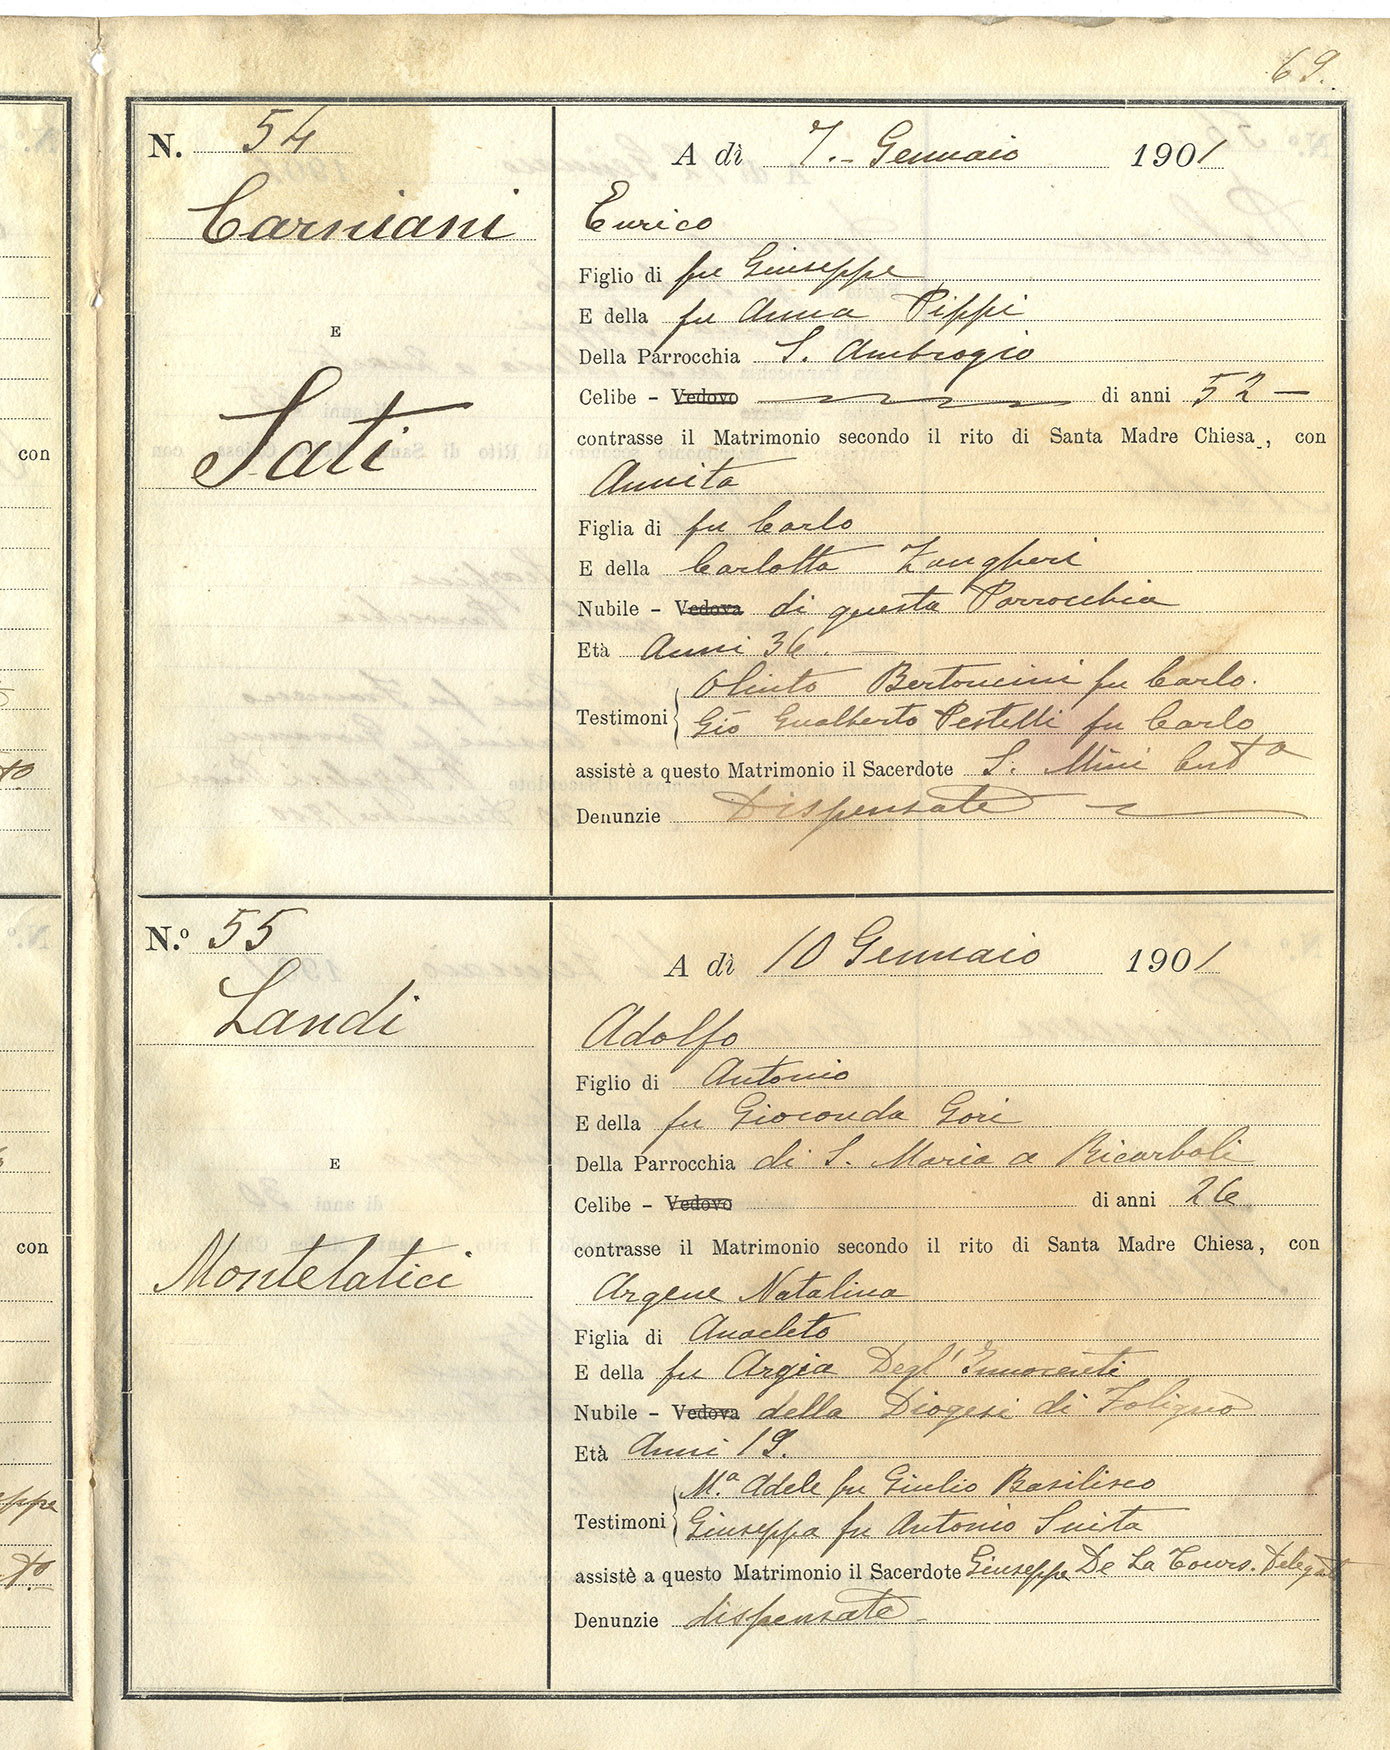 69.
N. 54
A dì 7.- Gennaio 1901
Carniani
E
Sati
Enrico
Figlio di fu Giuseppe
E della fu Anna Pippi
Della Parrocchia S. Ambrogio
Celibe - Vedovo di anni 52 —
contrasse il Matrimonio secondo il rito di Santa Madre Chiesa, con
Annita
Figlia di fu Carlo
E della Carlotta Zangheri
Nubile - Vedova di questa Parrocchia
Età Anni 36. —
Testimoni Olinto Bertoncini fu Carlo.
Gio Gualberto Pestelli fu Carlo
assistè a questo Matrimonio il Sacerdote S. Mini
Denunzie Dispensate
N.º 55
A dì 10 Gennaio 1901
Landi
E
Montelatici
Adolfo
Figlio di Antonio
E della fu Gioconda Gori
Della Parrocchia di S. Maria a Ricorboli
Celibe - Vedovo di anni 26
contrasse il Matrimonio secondo il rito di Santa Madre Chiesa, con
Argene Natalina
Figlia di Anacleto
E della fu Argia Degl' Innocenti
Nubile - Vedova della Diogesi di Foligno
Età Anni 19.
Testimoni M.ª Adele fu Giulio Basilisco
Giuseppa fu Antonio Suita
assistè a questo Matrimonio il Sacerdote Giuseppe De La Tours. Delegato
Denunzie dispensate
con
con